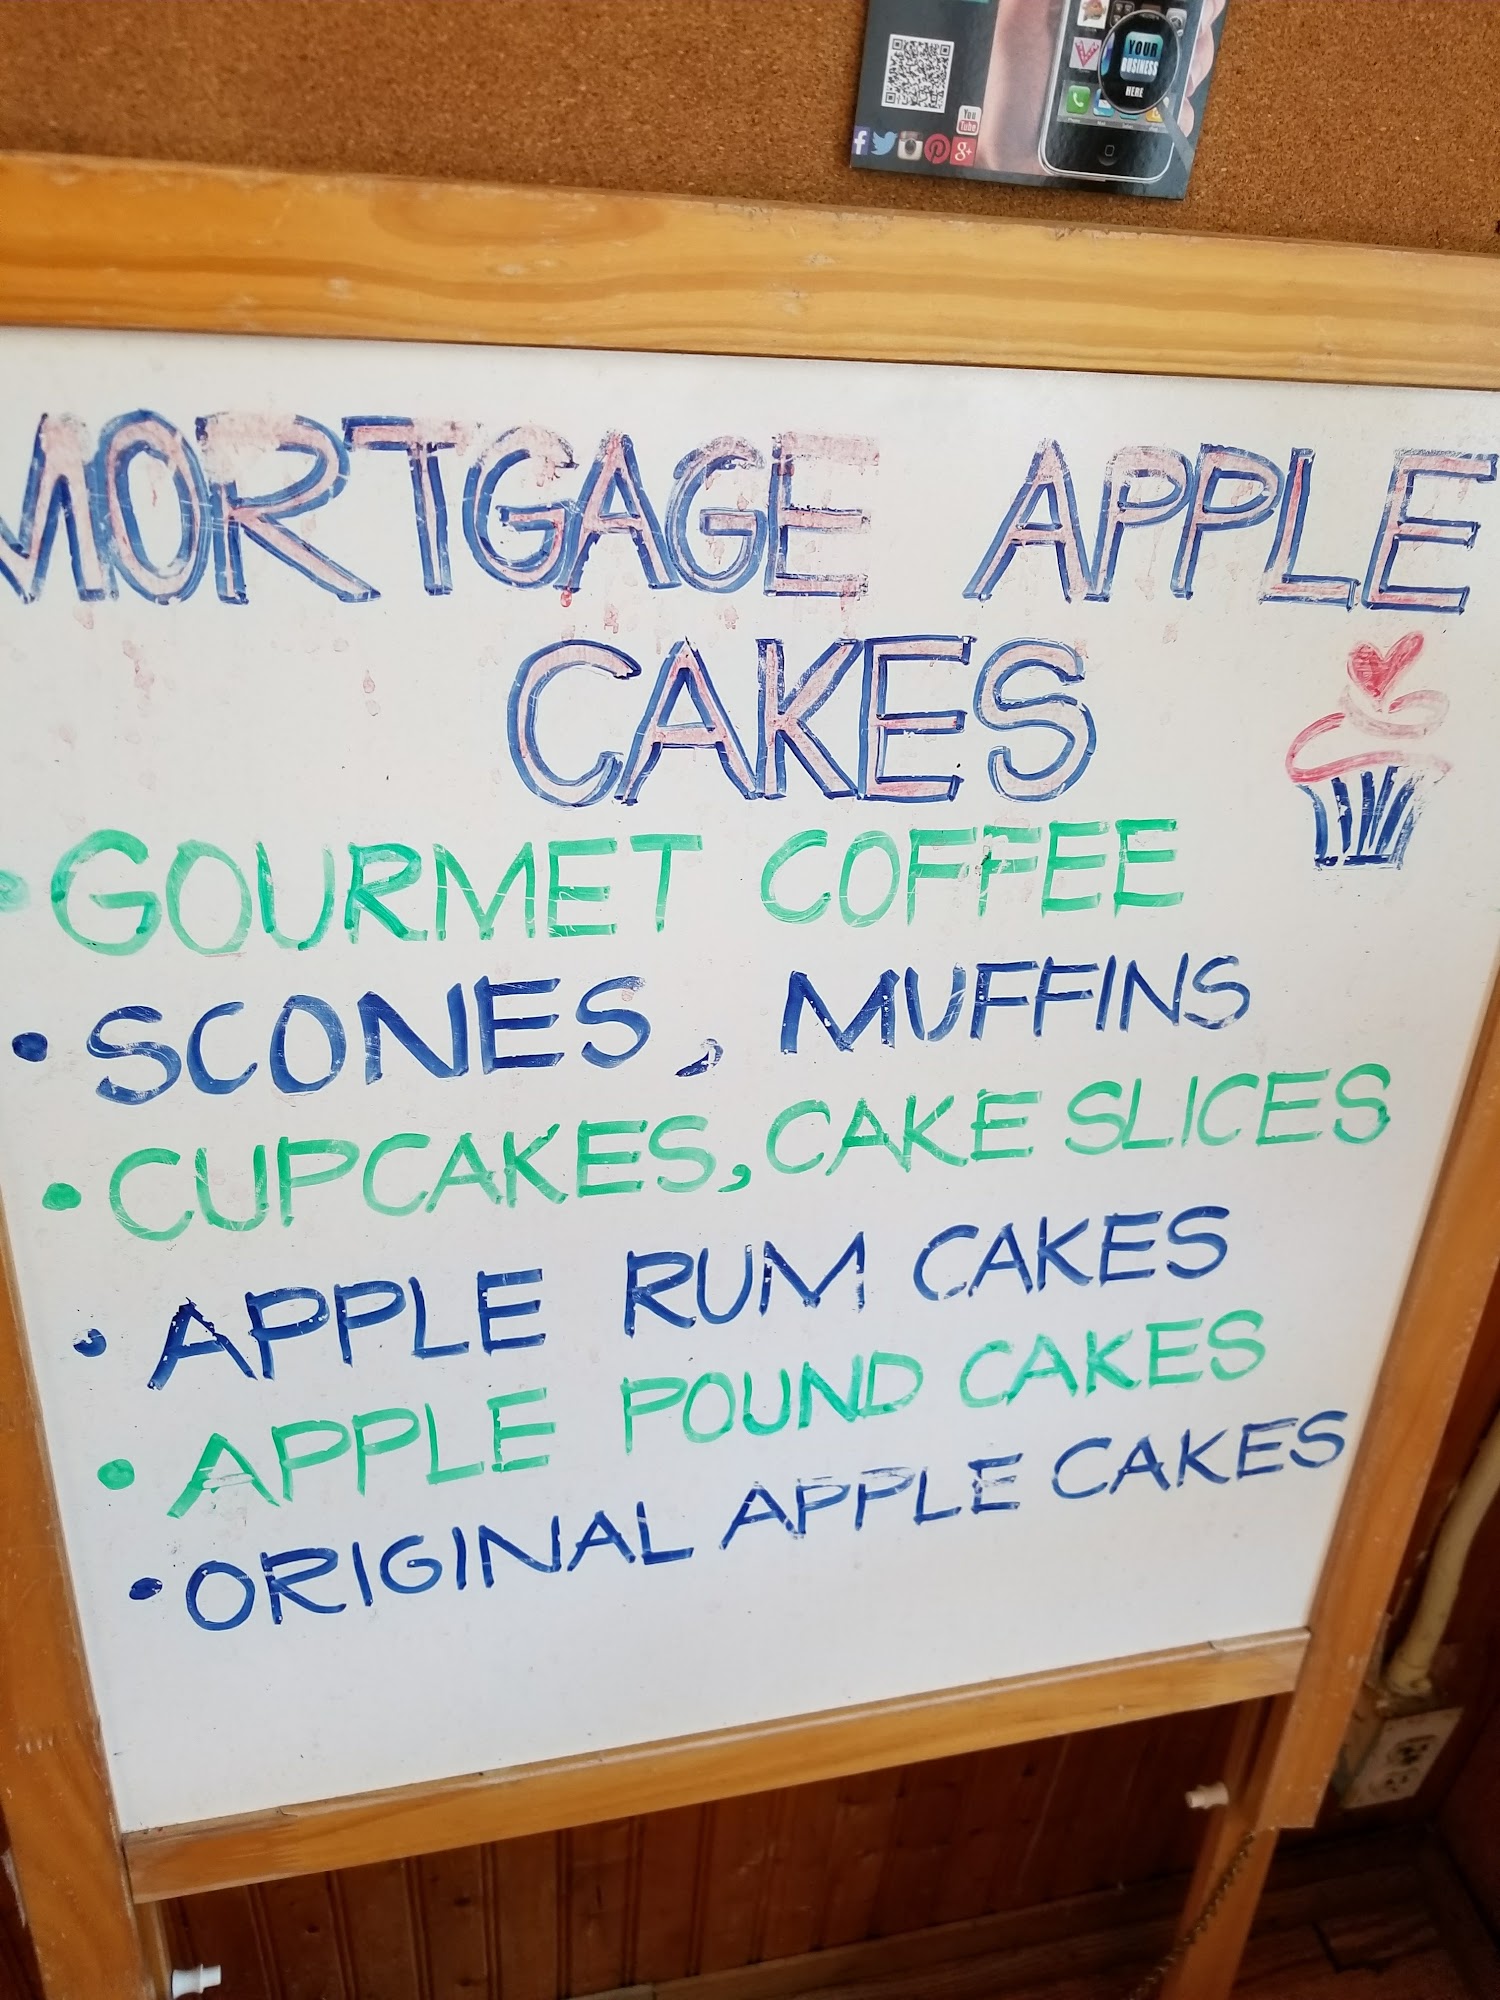 You Tube
YOUR
BUSINESS
HERE
MORTGAGE APPLE
CAKES
• GOURMET COFFEE
• SCONES, MUFFINS
• CUPCAKES, CAKE SLICES
• APPLE RUM CAKES
• APPLE POUND CAKES
• ORIGINAL APPLE CAKES